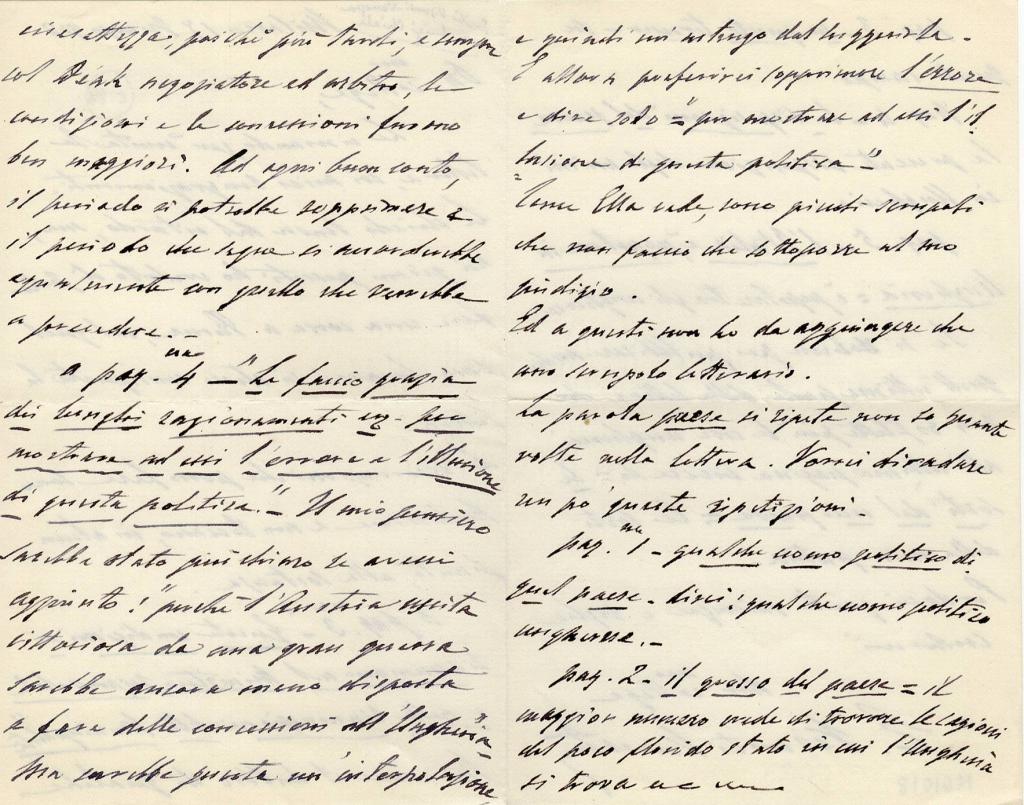 inesattezza, poichè più tardi, e sempre
col Deák negoziatore ed arbitro, le
condizioni e le concessioni furono
ben maggiori. Ad ogni buon conto,
il periodo si potrebbe sopprimere e
il periodo che segue si accorderebbe
egualmente con quello che verrebbe
a precedere. —
a pag. 4 — "Le faccio grazia
dei lunghi ragionamenti ez- per
mostrare ad essi l'errore e l'illusione
di questa politica." — Il mio pensiero
sarebbe stato più chiaro se avessi
aggiunto: "perchè l'Austria uscita
vittoriosa da una gran guerra
sarebbe ancora meno disposta
a fare delle concessioni all'Ungheria"
Ma sarebbe questa un'interpolazione,
e quindi mi astengo dal suggerirla.
E allora preferirei sopprimere l'errore
e dire solo = "per mostrare ad essi l'il
lusione di questa politica" =
Come Ella vede, sono piccoli scrupoli
che non faccio che sottoporre al suo
giudizio.
Ed a questi non ho da aggiungere che
uno scrupolo letterario.
La parola paese si ripete non so quante
volte nella lettera. Vorrei diradare
un pò queste ripetizioni.
pag. 1 — qualche uomo politico di
quel paese — direi: qualche uomo politico
ungherese. —
pag. 2 — il grosso del paese = il
maggior numero crede di trovare le cagioni
del poco florido stato in cui l'Ungheria
si trova